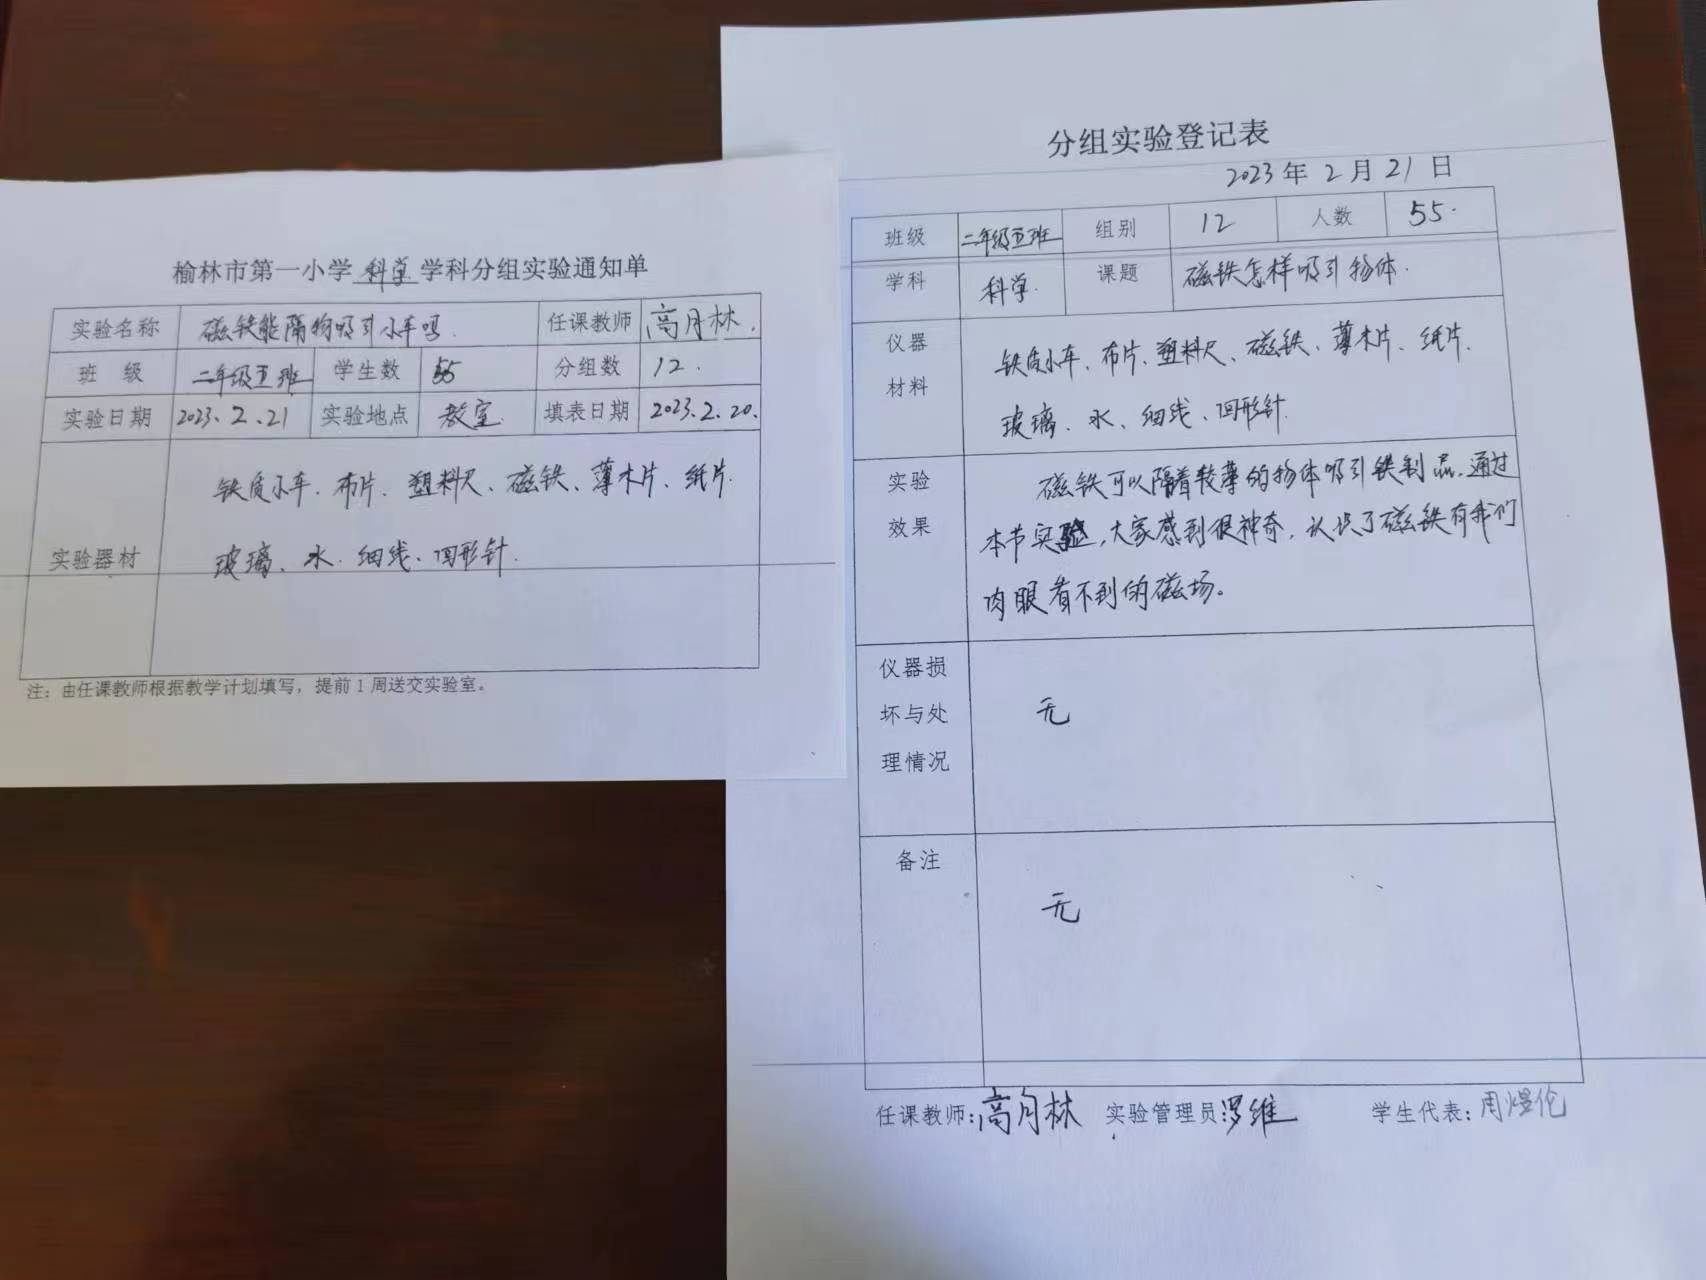 榆林市第一小学 科学 学科分组实验通知单
实验名称 磁铁能隔物吸引小车吗. 任课教师 高月林.
班 级 二年级五班 学生数 55 分组数 12.
实验日期 2023.2.21 实验地点 教室. 填表日期 2023.2.20.
实验器材
铁质小车、布片、塑料尺、磁铁、薄木片、纸片.
玻璃、水、细线、回形针.
注：由任课教师根据教学计划填写，提前1周送交实验室。
分组实验登记表
2023年2月21日
班级 二年级五班 组别 12 人数 55.
学科 科学. 课题 磁铁怎样吸引物体.
仪器
材料
铁质小车、布片、塑料尺、磁铁、薄木片、纸片.
玻璃、水、细线、回形针.
实验
效果
磁铁可以隔着较薄的物体吸引铁制品.通过
本节实验,大家感到很神奇,认识了磁铁有我们
肉眼看不到的磁场。
仪器损
坏与处
理情况
无
备注
无
任课教师:高月林 实验管理员:罗维 学生代表:周煜伦